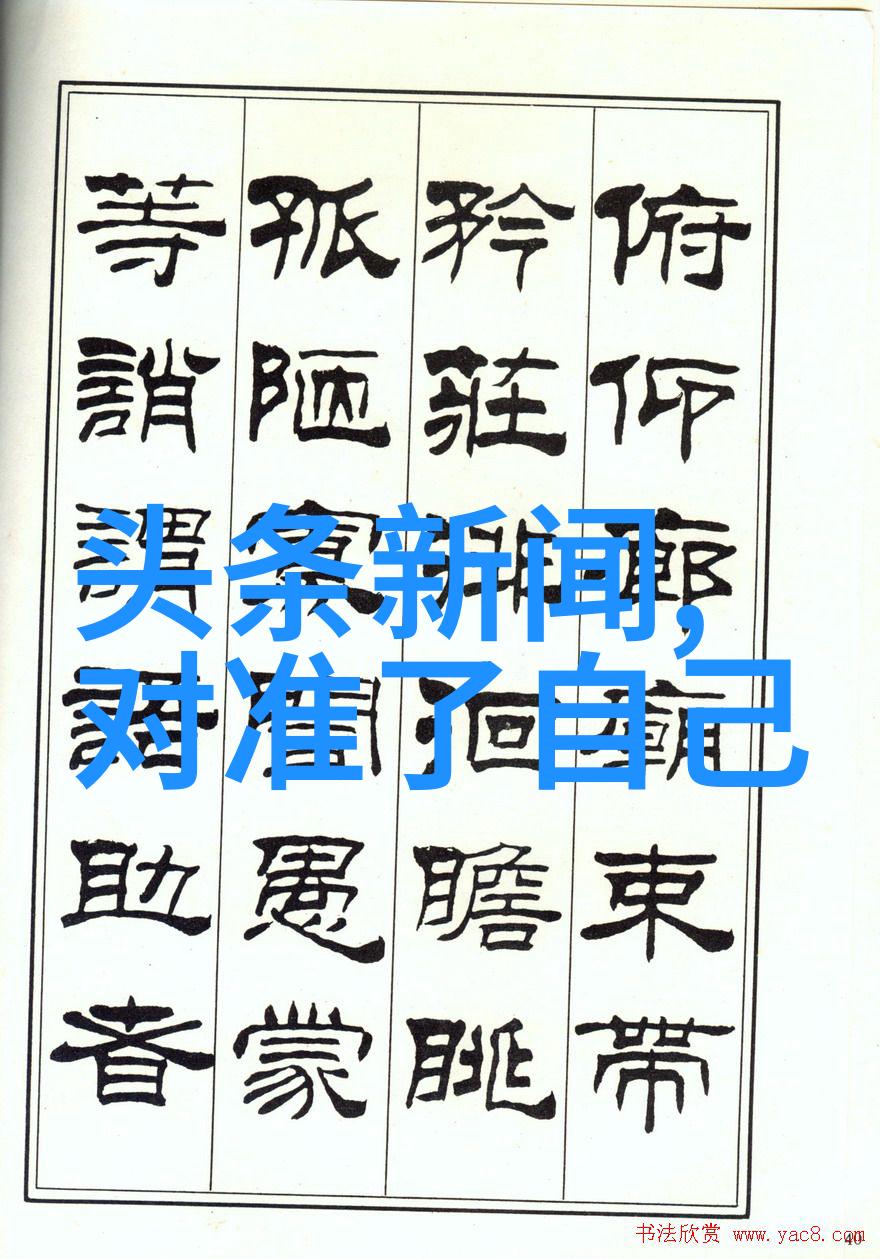 俯仰廊廟束帶
矜莊徘徊瞻眺
孤陋寡聞愚蒙
等誚謂語助者
头条新闻,
对准了自己
书法欣赏 www.yac8.com
40